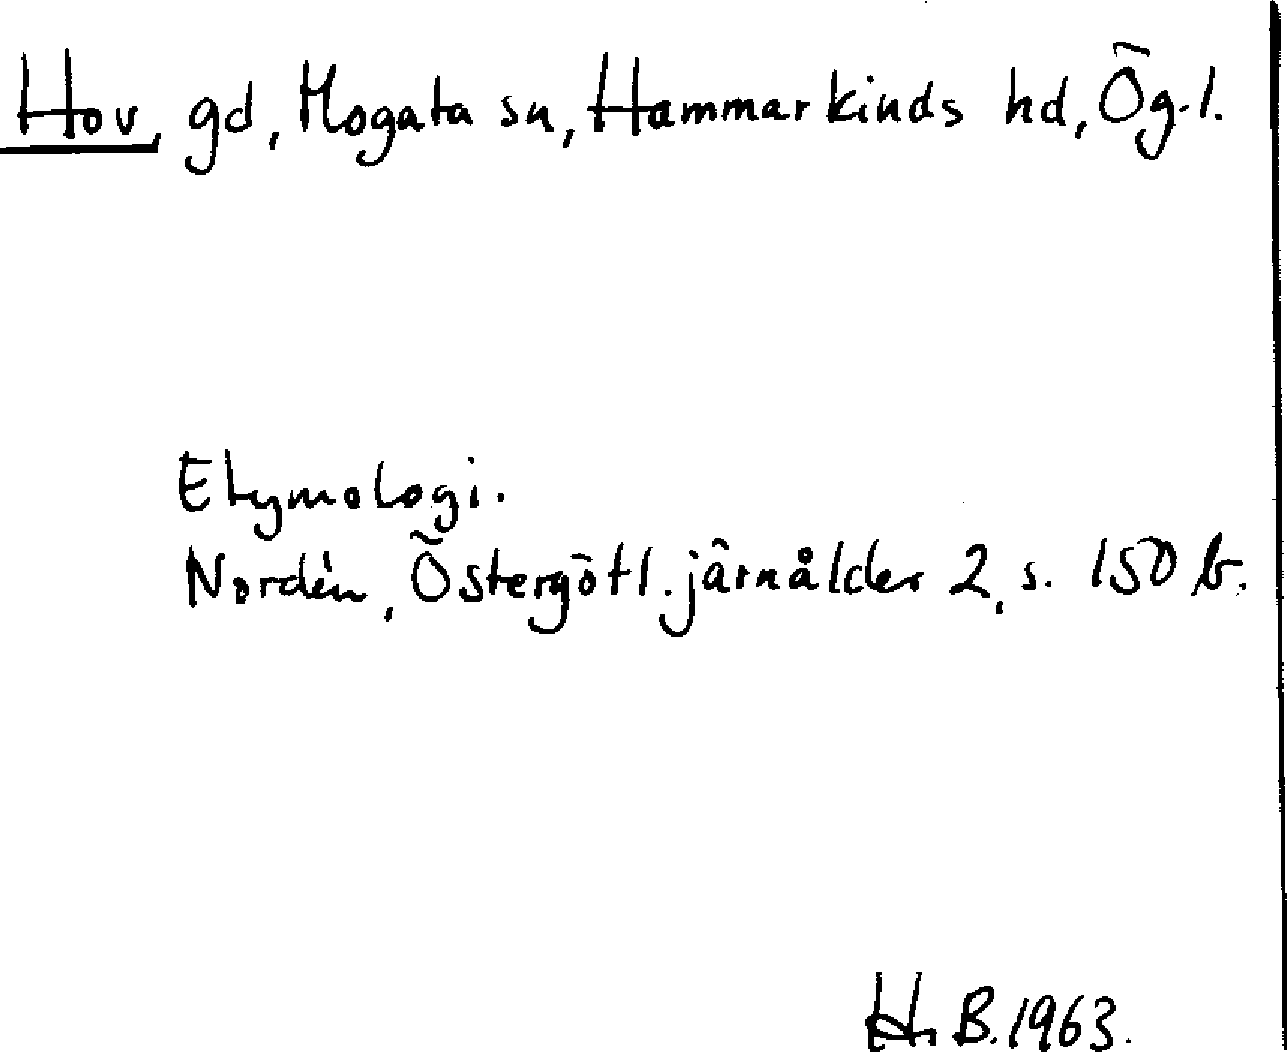 Hov, gd, Mogata sn, Hammarkinds hd, Ög-l.
Etymologi.
Nordén, Östergötl. järnålder 2, s. 150 b.
H. B. 1963.